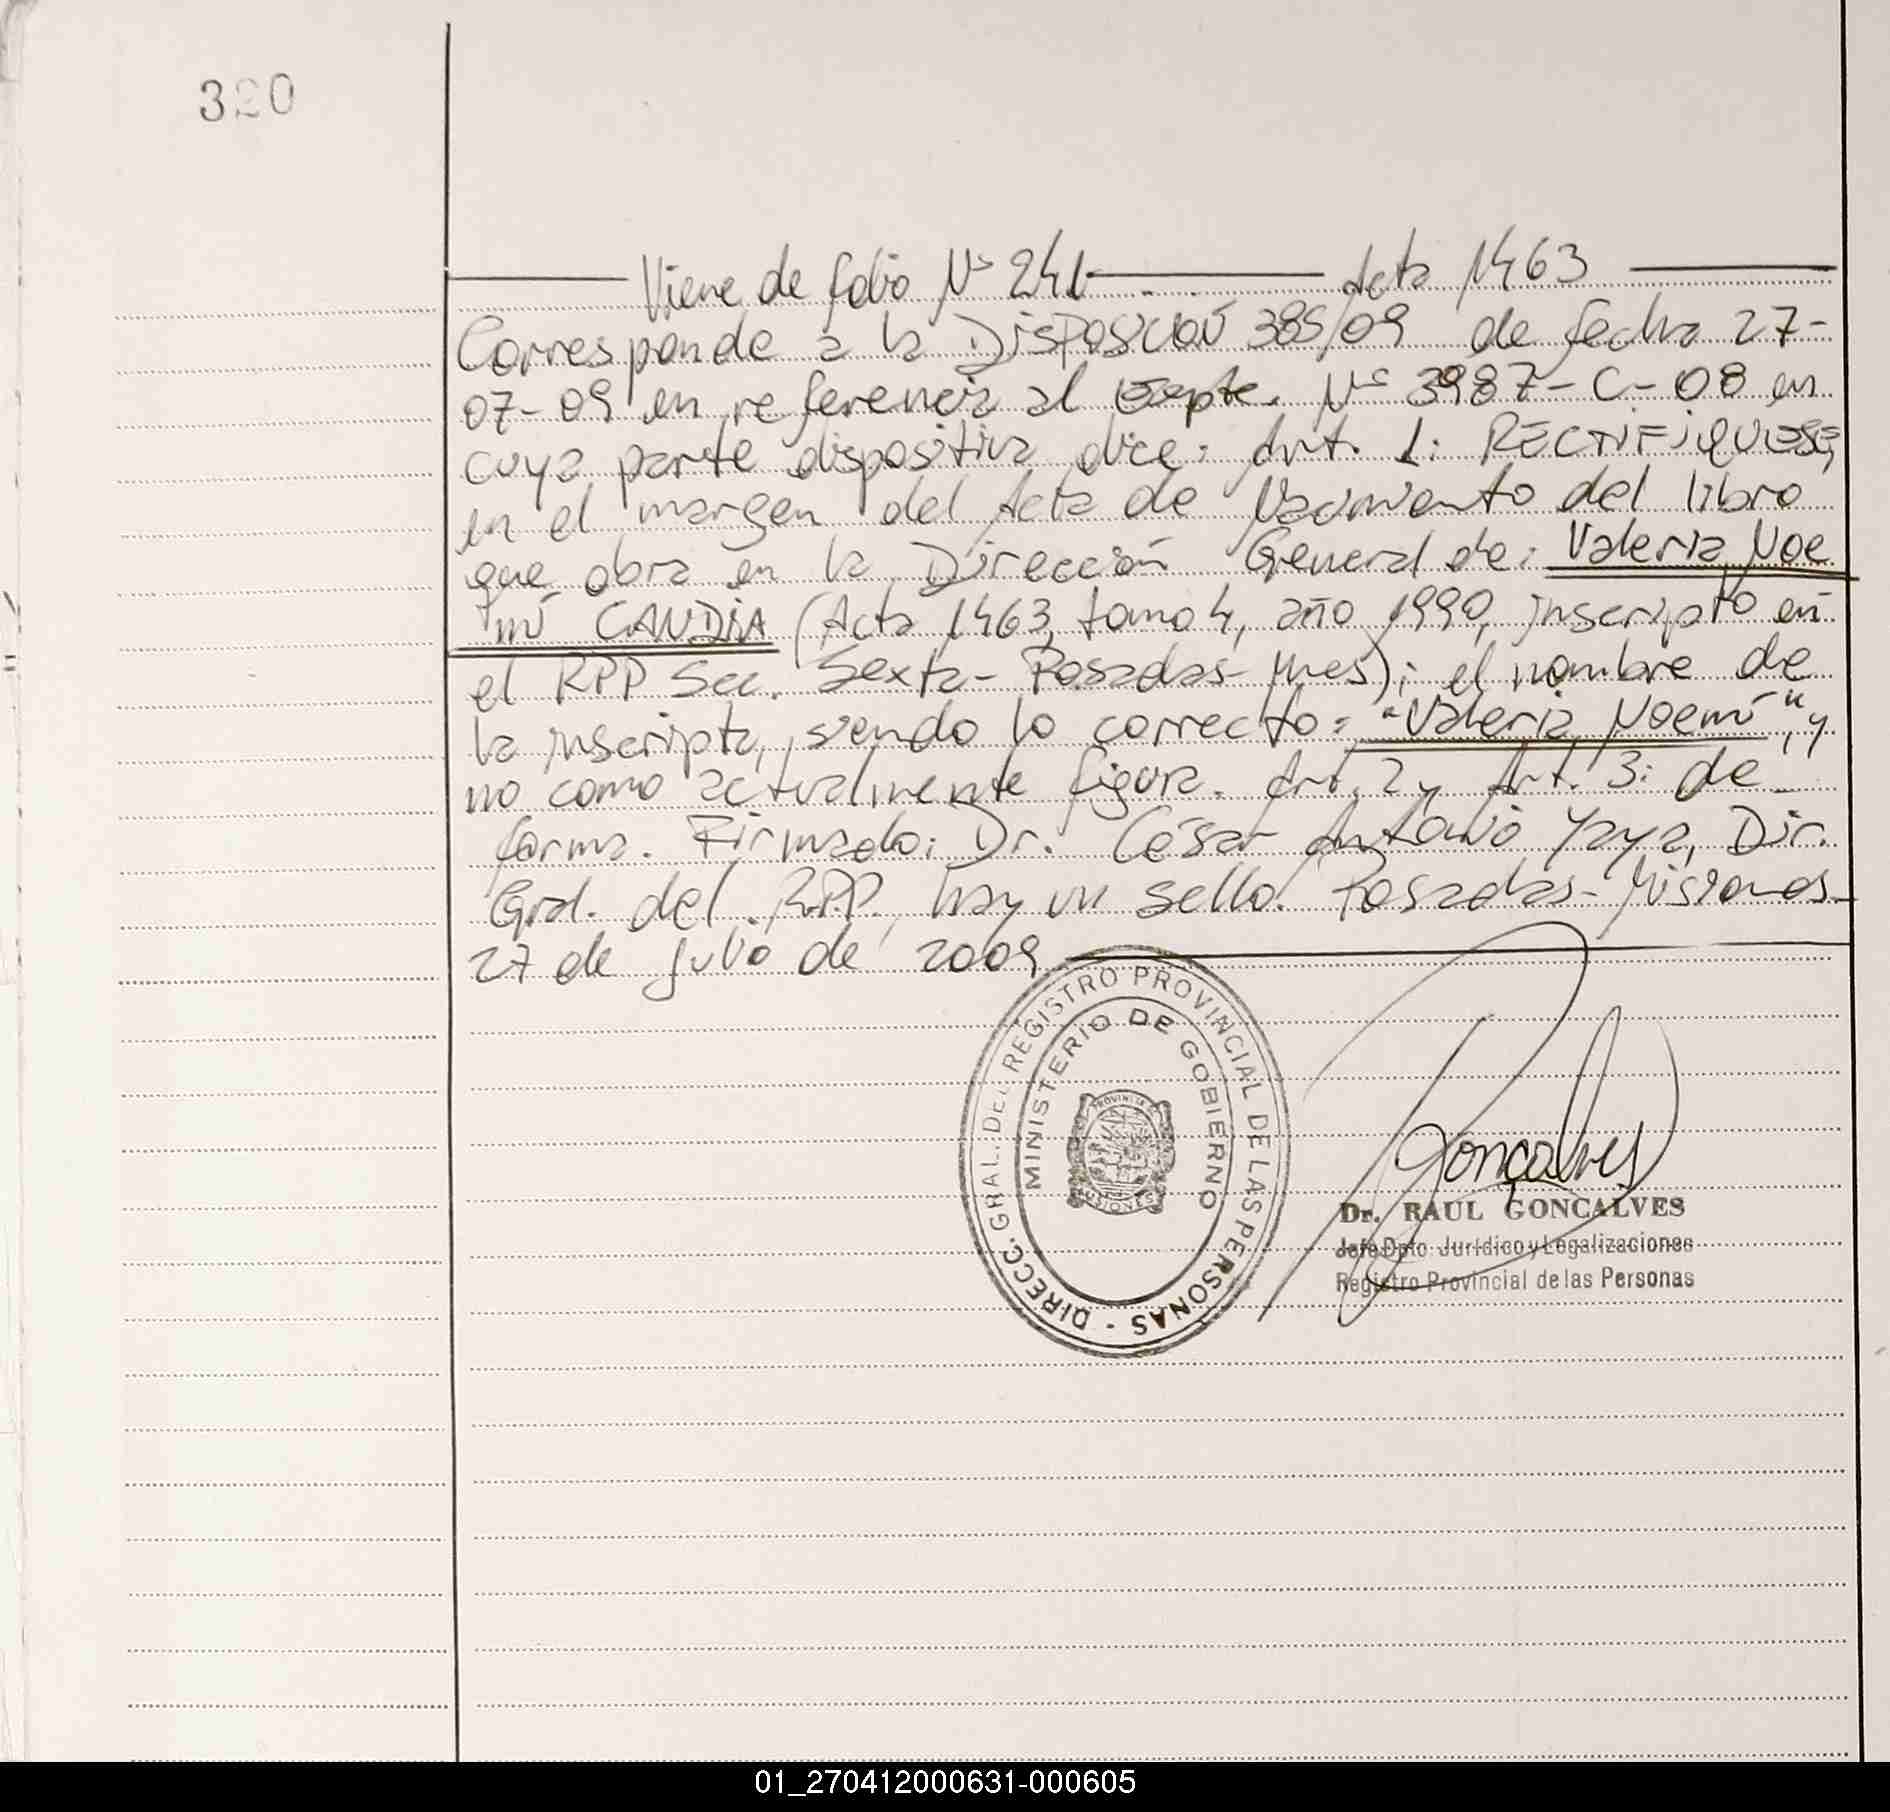 320
Viene de folio Nº 241 Acta 1463
Corresponde a la DISPOSICIÓN 385/09 de fecha 27-
07-09 en referencia al Expte. Nº 3987-C-08 en
cuya parte dispositiva dice: Art. 1: RECTIFIQUESE,
en el margen del Acta de Nacimiento del libro
que obra en la Dirección General de: Valeria Noe
mí CANDIA (Acta 1463, tomo 4, año 1990, inscripto en
el RPP Sec. Sexta- Posadas- Mnes); el nombre de
la inscripta, siendo lo correcto: "Valeria Noemí", y
no como actualmente figura. Art. 2 y Art. 3: de
forma. Firmado: Dr. César Antonio Yaya, Dir.
Gral. del R.P.P., hay un sello. Posadas- Misiones-
27 de Julio de 2009
DIRECC. GRAL. DEL REGISTRO PROVINCIAL DE LAS PERSONAS -
MINISTERIO DE GOBIERNO
PROVINCIA DE
MISIONES
Gonçalves
Dr. RAUL GONCALVES
Jefe Dpto. Jurídico y Legalizaciones
Registro Provincial de las Personas
01_270412000631-000605